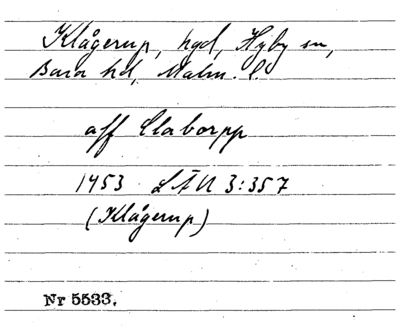 Klågerup, hgd, Hyby sn,
Bara hd, Malm. l.
aff Claborpp
1453 LÄU 3:357
(Klågerup)
Nr 5533.